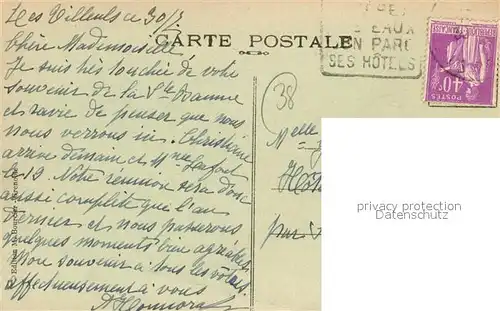 Les Tilleuls ce 30/7
CARTE POSTALE
SES EAUX
SON PARC
SES HÔTELS
POSTES
40c
38
Chère Mademoiselle
Je suis très touchée de votre
souvenir de la Ste Anne
et ravie de penser que nous
nous verrons ici. Christiane
arrive demain et Mme
le 19. Notre réunion sera donc
aussi complète que l'an
dernier et nous passerons
quelques moments bien agréables.
Mon souvenir à tous les vôtres
affectueusement à vous
Melle
par
privacy protection
Datenschutz